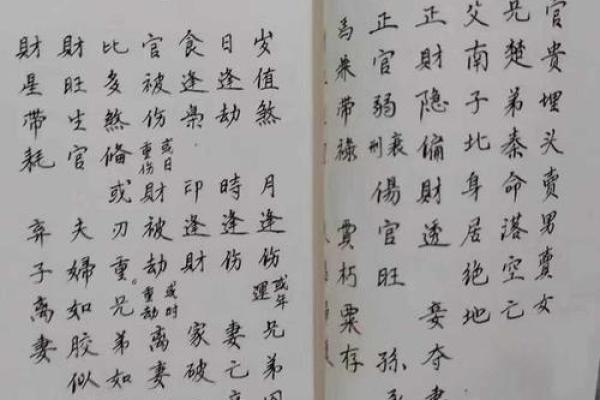 官貴埋头賣男賣女
兄楚弟秦命落空亡
父南子北身居绝地
正財隐偏財透 妾夺
正官弱衰刑傷官旺 孫
馬乘带祿 貫朽粟存
岁值煞 月逢伤或年運 兄弟
日逢劫 時逢伤 妻亡
食逢枭 印逢財 家破
官被伤或日重伤 財被劫或时重劫 离妻
比多煞偹 或刃重。兄弟如
財旺生官 夫婦如胶似
財星帶耗 弃子离妻